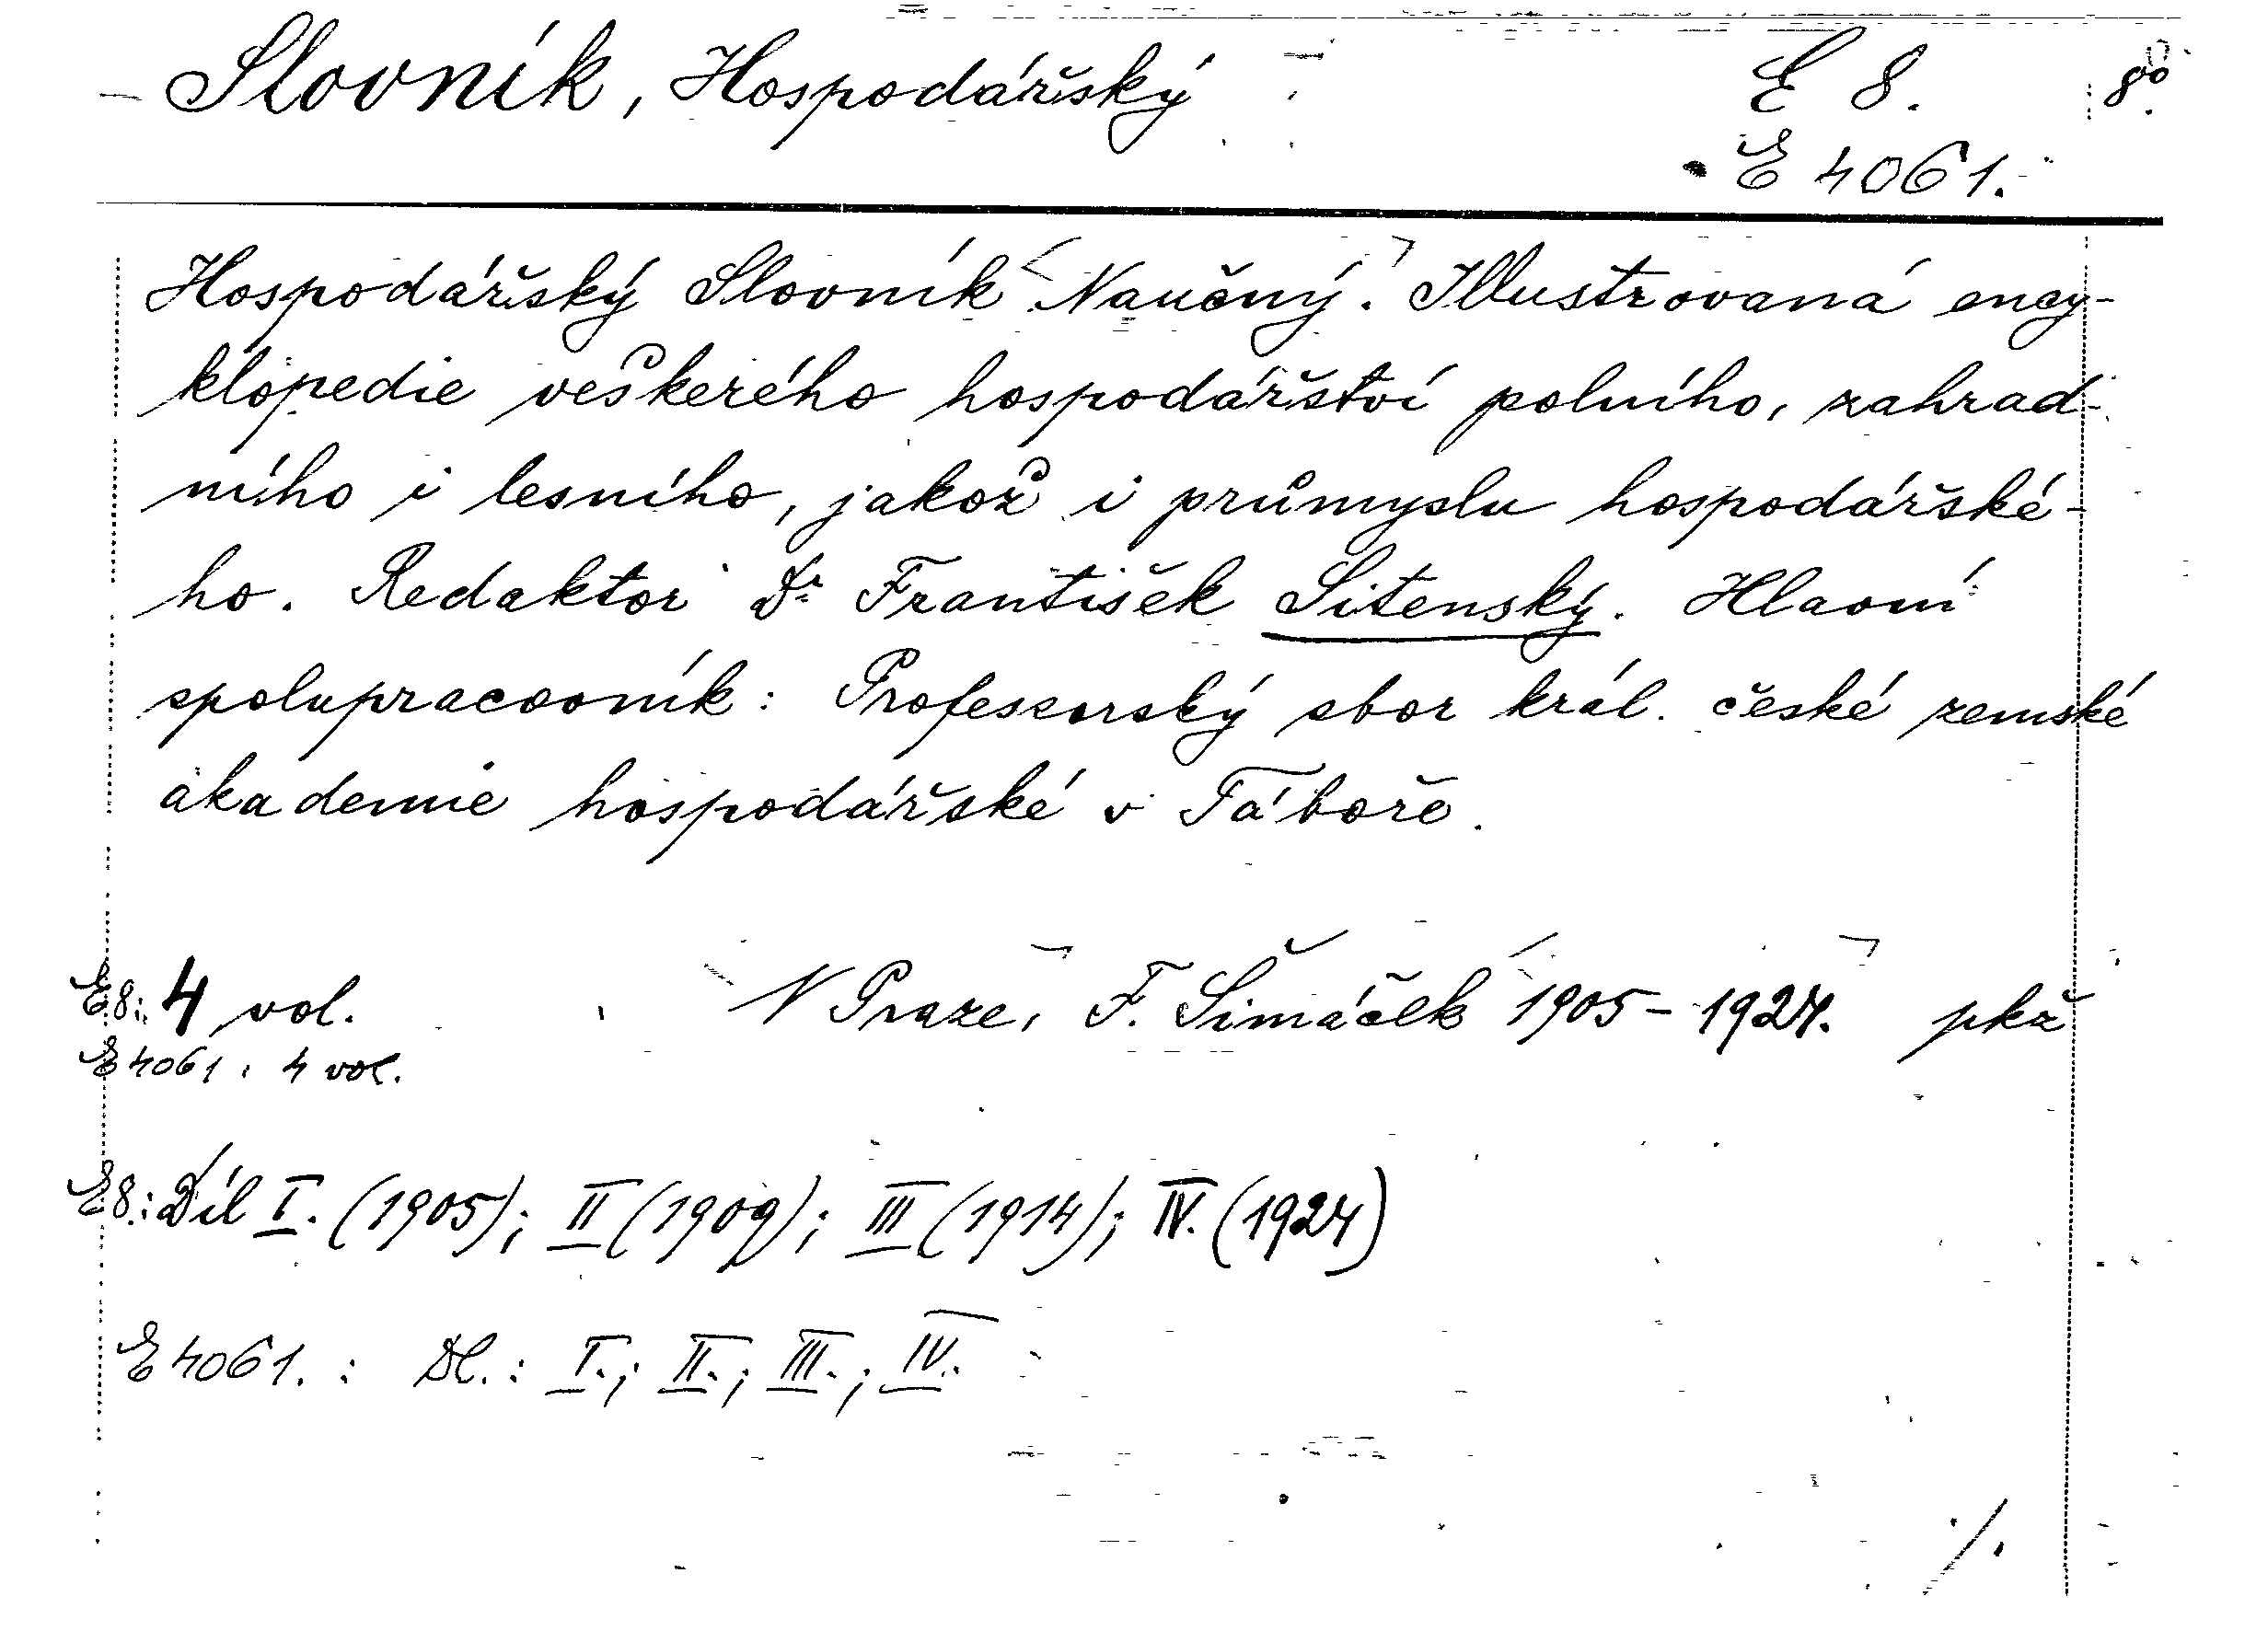 Slovník, Hospodářský E 8. 8°.
E 4061.
Hospodářský Slovník Naučný. Illustrovaná ency-
klopedie veškerého hospodářství polního, zahrad-
ního i lesního, jakož i průmyslu hospodářské-
ho. Redaktor Dr František Sitenský. Hlavní
spolupracovník: Professorský sbor král. české zemské
akademie hospodářské v Táboře.
E8: 4 vol. V Praze, F. Šimáček 1905-1924. pkž
E4061: 4 vol.
E8: Díl I. (1905); II (1909); III (1914); IV. (1924)
E4061.: Dl.: I.; II.; III.; IV.
/.